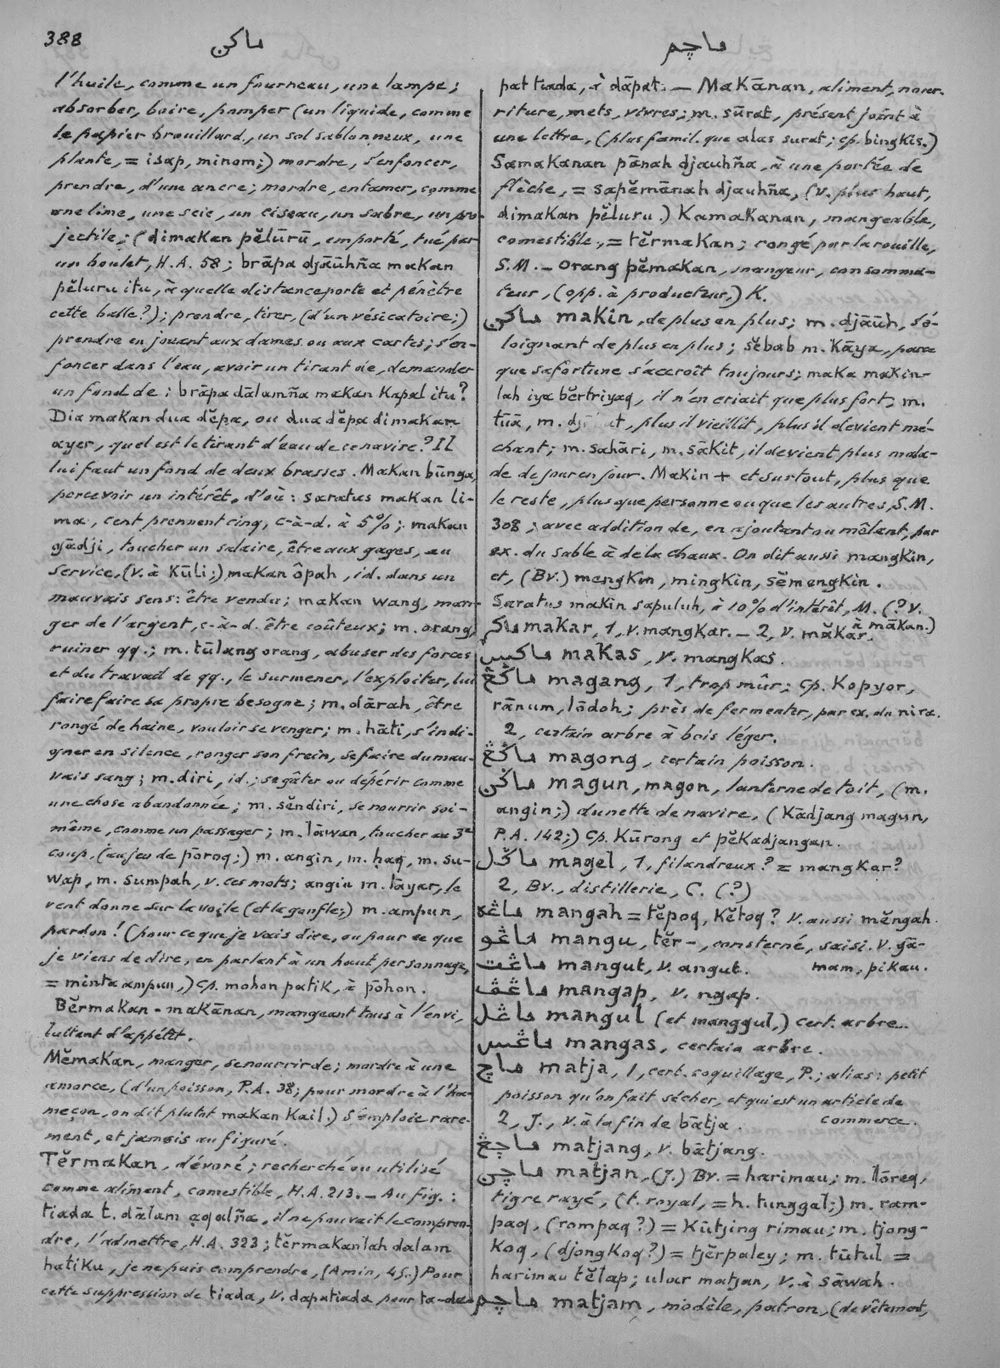 388
ماكن
ماچم
l'huile, comme un fourneau, une lampe;
absorber, boire, pomper (un liquide, comme
le papier brouillard, un sol sablonneux, une
plante, = isap, minom;) mordre, s'enfoncer,
prendre, d'une ancre; mordre, entamer, comme
une lime, une scie, un ciseau, un sabre, un pro-
jectile; (dimakan pĕlūrū, emporté, tué par
un boulet, H.A. 58; brāpa djāūhña makan
pĕluru itu, à quelle distance porte et pénètre
cette balle?); prendre, tirer, (d'un vésicatoire;)
prendre en jouant aux dames ou aux cartes; s'en-
foncer dans l'eau, avoir un tirant de, demander
un fond de; brāpa dālamña makan kapal itu?
Dia makan dua dĕpa, ou dua dĕpa dimakan
ayer, quel est le tirant d'eau de ce navire? Il
lui faut un fond de deux brasses. Makan būnga,
percevoir un intérêt, d'où: saratus makan li-
ma, cent prennent cinq, c-à-d. à 5%; makan
gādji, toucher un salaire, être aux gages, au
service, (v. à Kūli;) makan ôpah, id. dans un
mauvais sens: être vendu; makan wang, man-
ger de l'argent, c-à-d. être coûteux; m. orang,
ruiner qq.; m. tūlang orang, abuser des forces
et du travail de qq., le surmener, l'exploiter, lui
faire faire sa propre besogne; m. dārah, être
rongé de haine, vouloir se venger; m. hāti, s'indi-
gner en silence, ronger son frein, se faire du mau-
vais sang; m. diri, id.; se gâter ou dépérir comme
une chose abandonnée; m. sĕndiri, se nourrir soi-
même, comme un passager; m. lāwan, toucher au 3e
coup, (au jeu de pōroq;) m. angin, m. ḥaq, m. su-
wap, m. sumpah, v. ces mots; angin m. lāyar, le
vent donne sur la voile (et la gonfle;) m. ampun,
pardon! (pour ce que je vais dire, ou pour ce que
je viens de dire, en parlant à un haut personnage,
= minta ampun,) cp. mohon patik, à pōhon.
Bĕrmakan-makānan, mangeant tous à l'envi,
luttant d'appétit.
Mĕmakan, manger, se nourrir de; mordre à une
amorce, (d'un poisson, P.A. 38; pour mordre à l'ha-
meçon, on dit plutôt makan kail.) S'emploie rare-
ment, et jamais au figuré.
Tĕrmakan, dévoré; recherché ou utilisé
comme aliment, comestible, H.A. 213. — Au fig.:
tiada t. dālam aqalña, il ne pouvait le compren-
dre, l'admettre, H.A. 323; tĕrmakanlah dalam
hatiku, je ne puis comprendre, (Amin, 45.) Pour
cette suppression de tiada, v. dapatiada pour ta-da-
pat tiada, à dāpat. — Makānan, aliment, nour-
riture, mets, vivres; m. sūrat, présent joint à
une lettre, (plus famil. que alas surat; cp. bingkis.)
Samakanan pānah djauhña, à une portée de
flèche, = sapĕmānah djauhña, (v. plus haut,
dimakan pĕluru.) Kamakanan, mangeable,
comestible, = tĕrmakan; rongé par la rouille,
S.M. — Orang pĕmakan, mangeur, consomma-
teur, (opp. à producteur,) K.
ماكن makin, de plus en plus; m. djāūh, s'é-
loignant de plus en plus; sĕbab m. kāya, parce
que sa fortune s'accroît toujours; maka makin-
lah iya bĕrtriyaq, il n'en criait que plus fort, m.
tūā, m. , plus il vieillit, plus il devient mé-
chant; m. sahāri, m. sākit, il devient plus mala-
de de jour en jour. Makin + et surtout, plus que
le reste, plus que personne ou que les autres, S.M.
308; avec addition de, en ajoutant ou mêlant, par
ex. du sable à de la chaux. On dit aussi mangkin,
et, (Bv.) mengkin, mingkin, sĕmengkin.
Saratus makin sapuluh, à 10% d'intérêt, M. (? v.
à mākan.)
ماكر makar, 1, v. mangkar. — 2, v. măkar.
ماكس makas, v. mangkas.
ماڬڠ magang, 1, trop mûr; cp. kopyor,
rānum, lōdoh; près de fermenter, par ex. du nira.
2, certain arbre à bois léger.
ماڬڠ magong, certain poisson.
ماڬن magun, magon, lanterne de toit, (m.
angin;) dunette de navire, (kādjang magun,
P.A. 142;) cp. kūrong et pĕkadjangan.
ماڬل magel, 1, filandreux? = mangkar?
2, Bv., distillerie, C. (?)
ماڠه mangah = tĕpoq, kĕtoq? v. aussi mĕngah.
ماڠو mangu, tĕr-, consterné, saisi. v. gā-
mam, pikau.
ماڠت mangut, v. angut.
ماڠڤ mangap, v. ngap.
ماڠل mangul (et manggul,) cert. arbre.
ماڠس mangas, certain arbre.
ماچ matja, 1, cert. coquillage, P.; alias: petit
poisson qu'on fait sécher, et qui est un article de
commerce.
2, J., v. à la fin de bātja.
ماچڠ matjang, v. bātjang.
ماچن matjan, (J.) Bv. = harimau; m. lōreq,
tigre rayé, (t. royal, = h. tunggal;) m. ram-
paq, (rompaq?) = kūtjing rimau; m. tjong-
koq, (djongkoq?) = tjĕrpaley; m. tūtul =
harimau tĕlap; ular matjan, v. à sāwah.
ماچم matjam, modèle, patron, (de vêtement,